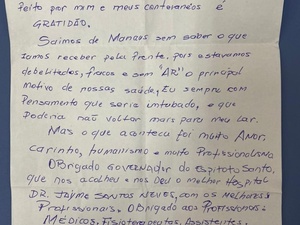 Feito por mim e meus conterrâneos é
GRATIDÃO.
Saímos de Manaus sem saber o que
íamos receber pela frente. Pois estavamos
debelitados, fracos e sem "AR" o principal
motivo de nossas saúde, Eu sempre com
Pensamento que seria entubado, e que
Poderia não voltar mais para meu lar.
Mas o que aconteceu foi muito Amor,
Carinho, humanismo e muito Profissionalismo
OBrigado Governador do Espirito Santo,
que nos acolheu e nos deu o melhor Hospital
DR. JAYME SANTOS NEVES, com os melhores
Profissionais. OBRigado aos Profissionais
MÉDICOS, Fisioterapeutas, Assistentes,